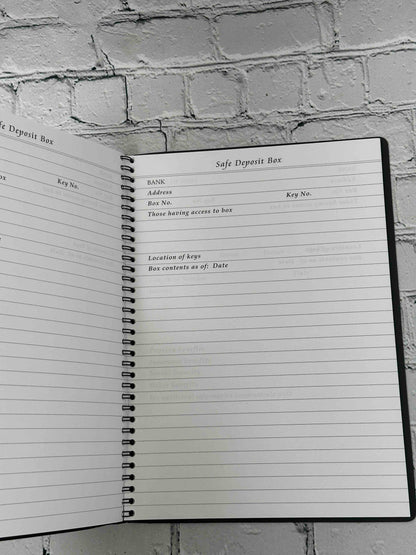 fe Deposit Box
ox
Key No.
Safe Deposit Box
BANK
Address
Box No. Key No.
Those having access to box
Location of keys
Box contents as of: Date